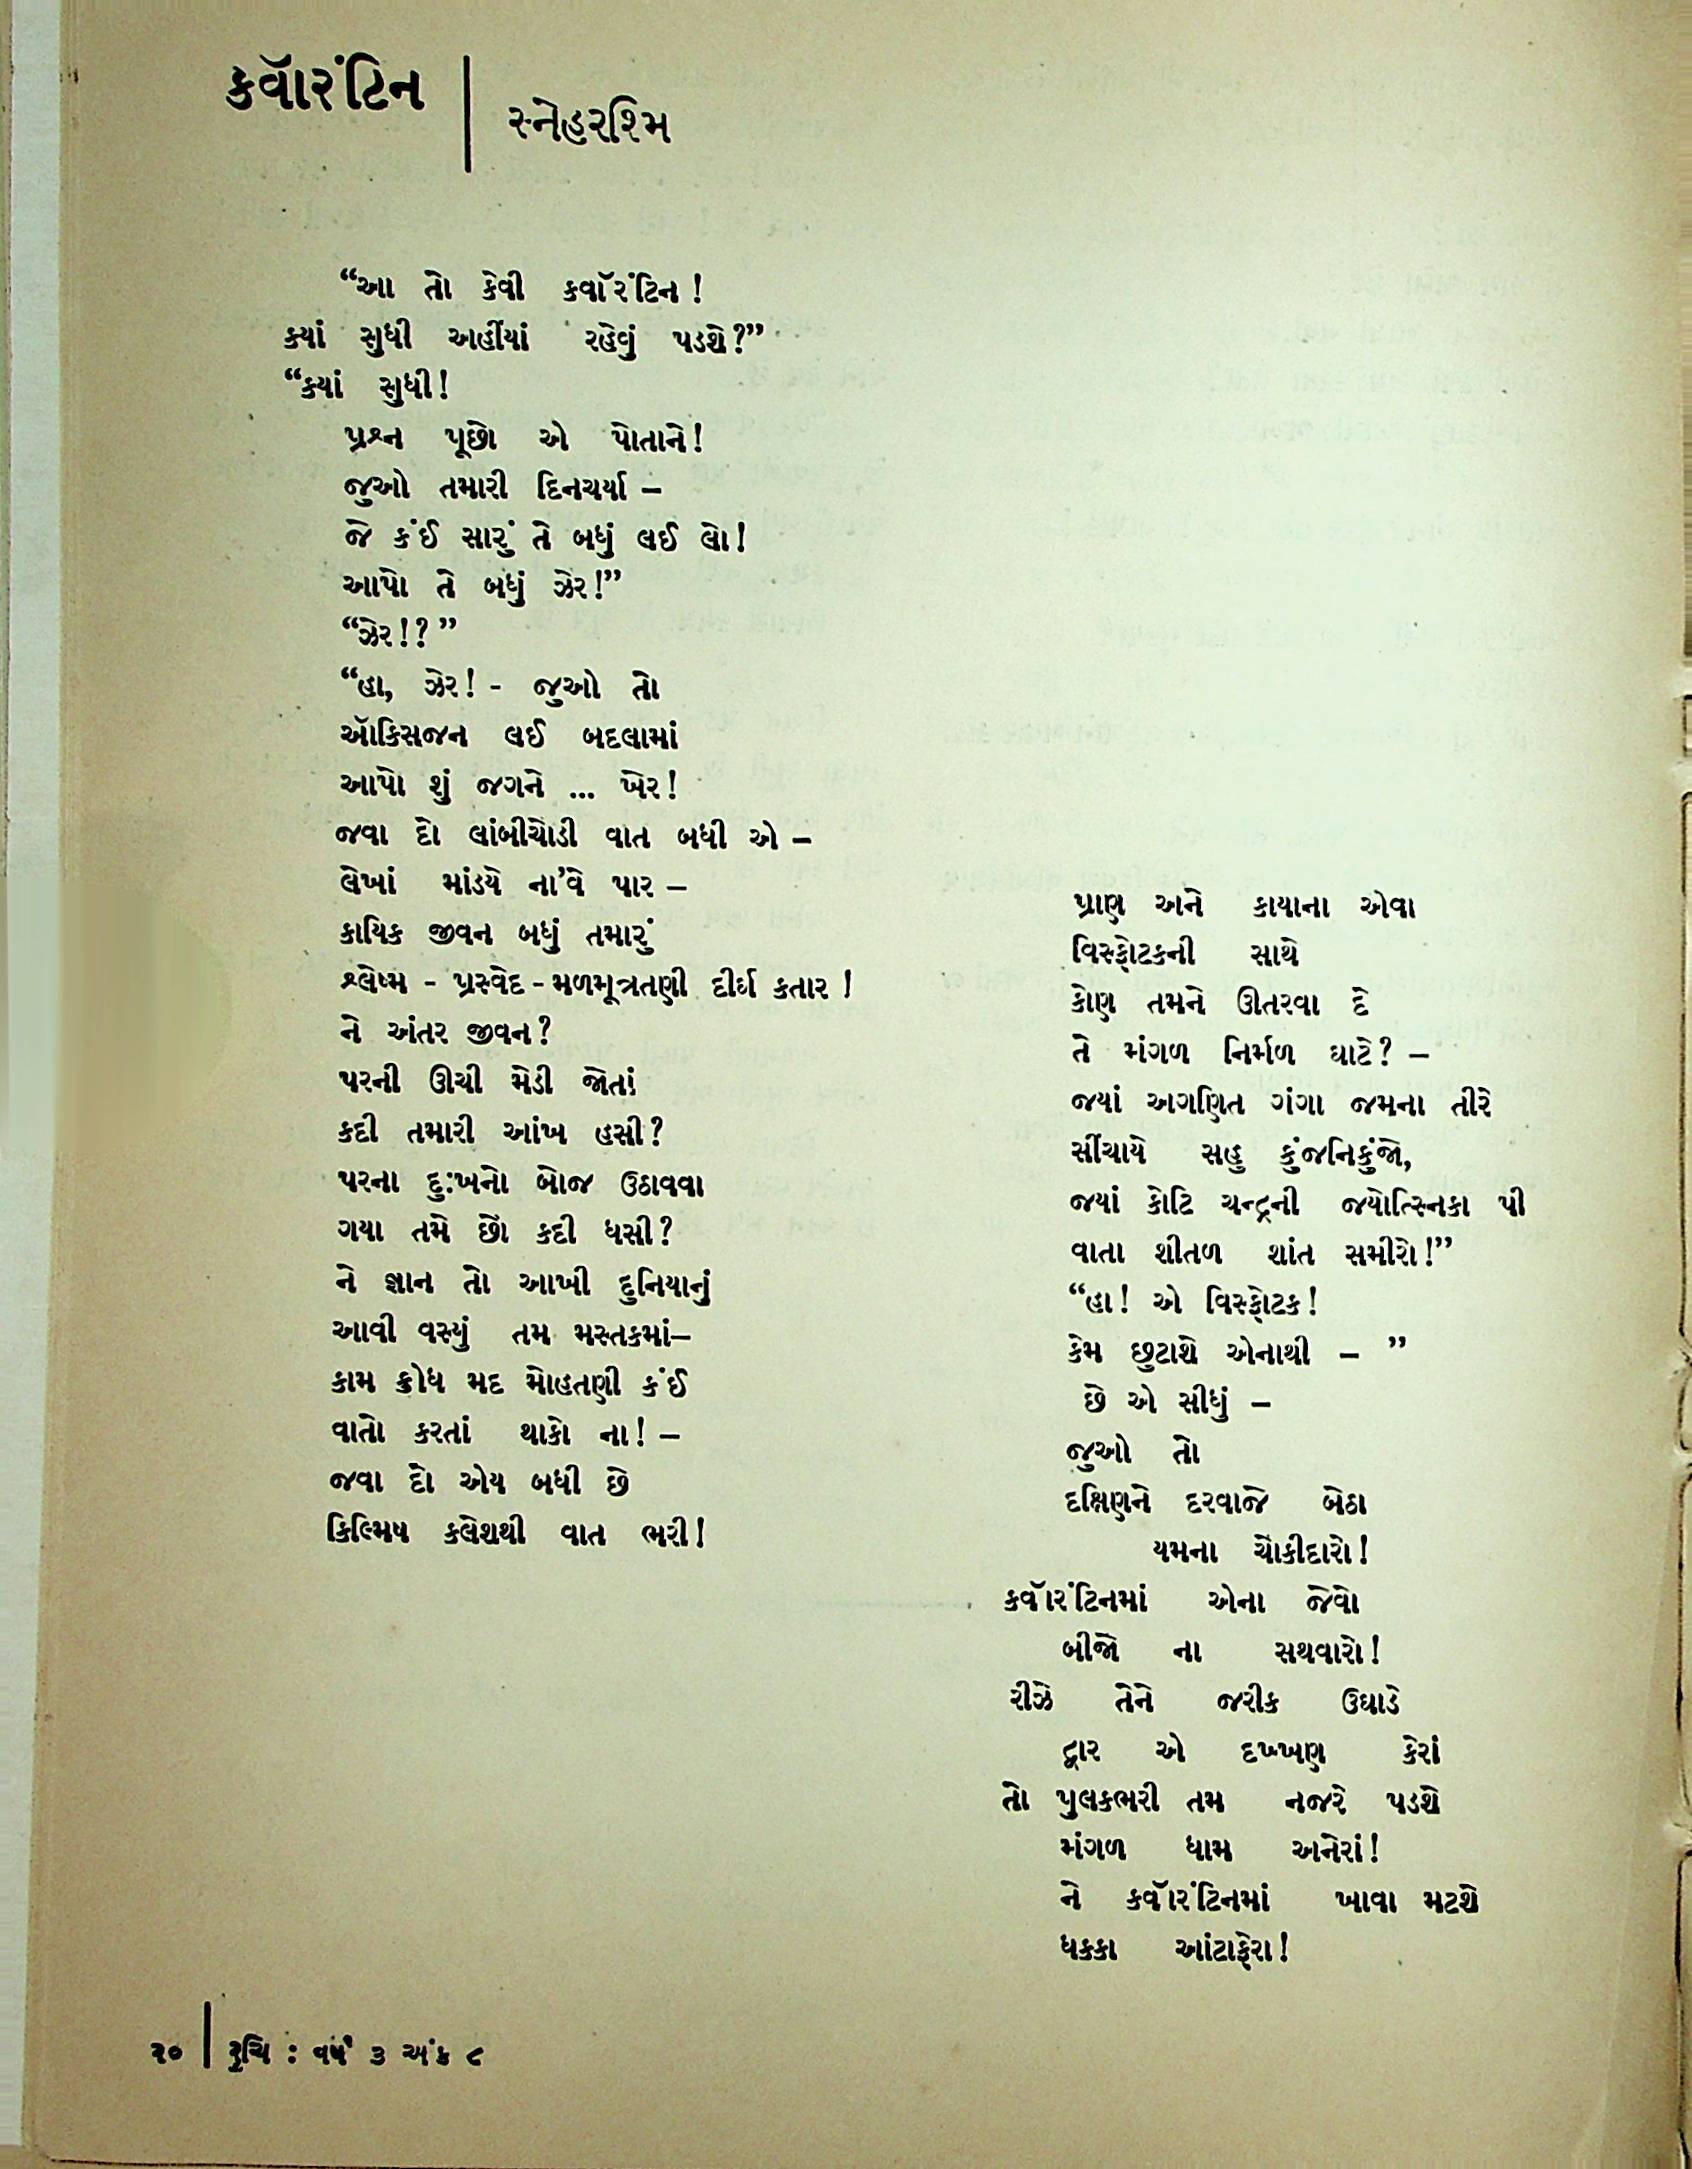 ક્વૉરંટિન
સ્નેહરશ્મિ
“આ તો કેવી ક્વૉરંટિન !
ક્યાં સુધી અહીંયાં રહેવું પડશે?”
“ક્યાં સુધી!
પ્રશ્ન પૂછો એ પોતાને!
જુઓ તમારી દિનચર્યા –
જે કંઈ સારું તે બધું લઈ લો!
આપો તે બધું ઝેર!”
“ઝેર!?”
“હા, ઝેર! - જુઓ તો
ઑક્સિજન લઈ બદલામાં
આપો શું જગને ... ખેર!
જવા દો લાંબીચોડી વાત બધી એ –
લેખાં માંડયે ના’વે પાર –
કાયિક જીવન બધું તમારું
શ્લેષ્મ - પ્રસ્વેદ - મળમૂત્રતણી દીર્ઘ કતાર !
ને અંતર જીવન?
પરની ઊચી મેડી જોતાં
કદી તમારી આંખ હસી?
પરના દુ:ખનો બોજ ઉઠાવવા
ગયા તમે છો કદી ધસી?
ને જ્ઞાન તો આખી દુનિયાનું
આવી વસ્યું તમ મસ્તકમાં–
કામ ક્રોધ મદ મોહતણી કંઈ
વાતો કરતાં થાકો ના! –
જવા દો એય બધી છે
કિલ્મિષ કલેશથી વાત ભરી!
પ્રાણ અને કાયાના એવા
વિસ્ફોટકની સાથે
કોણ તમને ઊતરવા દે
તે મંગળ નિર્મળ ઘાટે? –
જ્યાં અગણિત ગંગા જમના તીરે
સીંચાયે સહુ કુંજનિકુંજો,
જ્યાં કોટિ ચન્દ્રની જ્યોત્સ્નિકા પી
વાતા શીતળ શાંત સમીરો!”
“હા! એ વિસ્ફોટક!
કેમ છુટાશે એનાથી – ”
છે એ સીધું –
જુઓ તો
દક્ષિણને દરવાજે બેઠા
યમના ચોકીદારો!
ક્વૉરંટિનમાં એના જેવો
બીજો ના સથવારો!
રીઝે તેને જરીક ઉઘાડે
દ્વાર એ દખ્ખણ કેરાં
તો પુલકભરી તમ નજરે પડશે
મંગળ ધામ અનેરાં!
ને ક્વૉરંટિનમાં ખાવા મટશે
ધક્કા આંટાફેરા!
૨૦ | રુચિ : વર્ષ ૩ અંક ૮